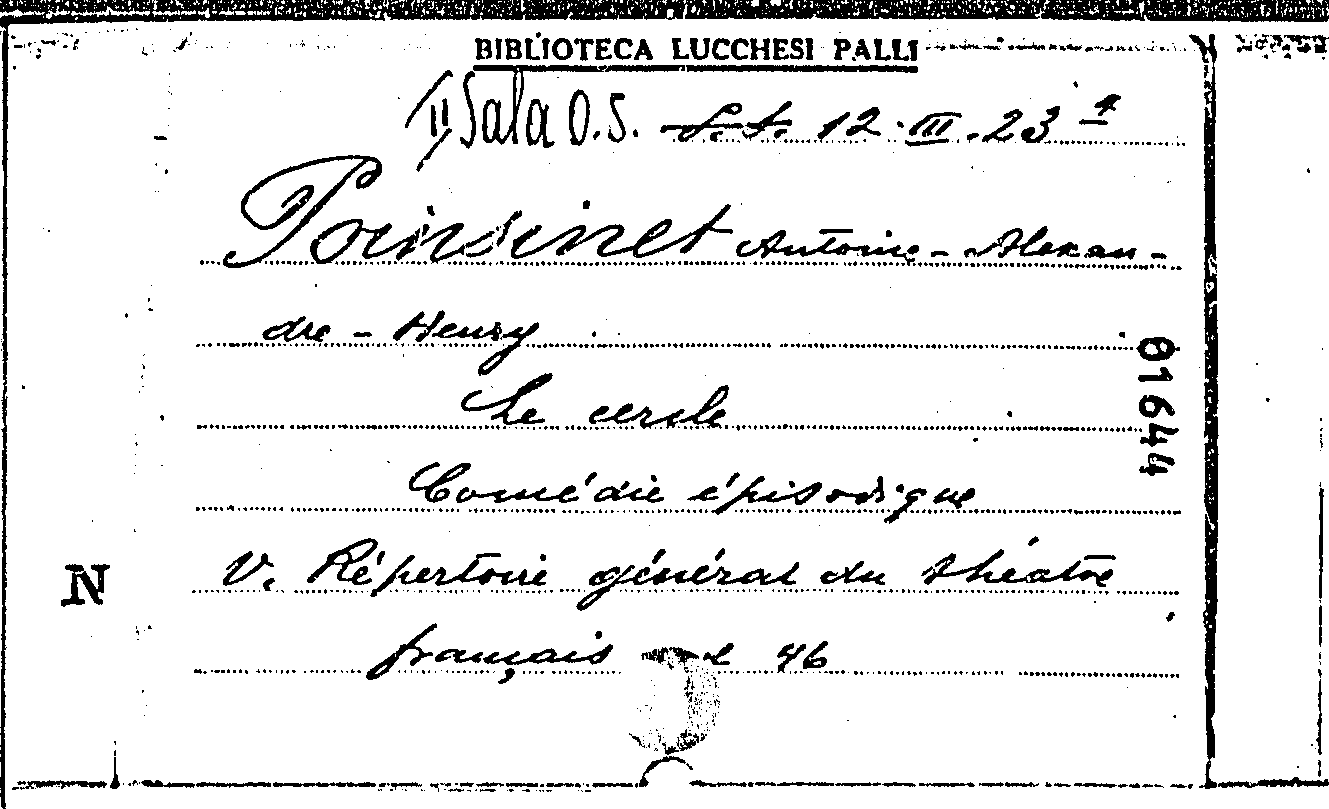 BIBLIOTECA LUCCHESI PALLI
II Sala O.S. S.S. 12.III.23
Poinsinet Antoine-Alexan-
dre-Henry
Le cercle
Comédie épisodique
V. Répertoire général du théâtre
français 46
01644
N